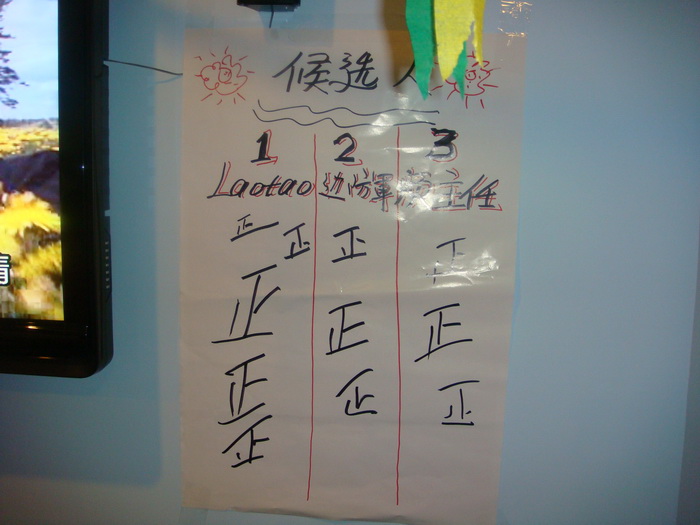 候选人
1 2 3
Laotao 边防军 主任
正 正 正 正
正 正 正
正 正 正
正